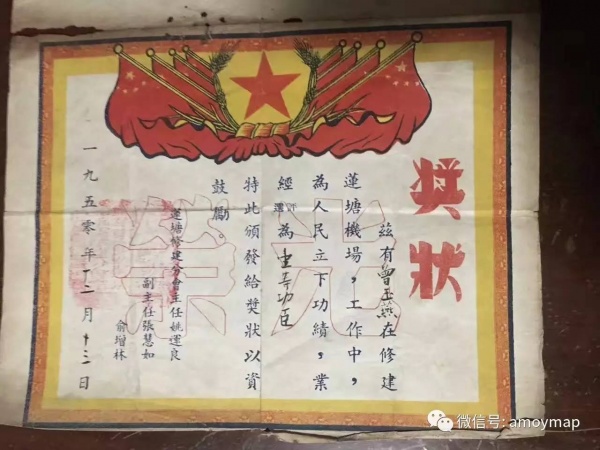 獎狀
茲有曾玉燕在修建
蓮塘機場，工作中，
為人民立下功績，業
經評選為功臣
特此頒發給獎狀以資
鼓勵
蓮塘修建分會主任姚運良
副主任張慧如
俞增林
一九五零年十二月十三日
光榮
微信号: amoymap